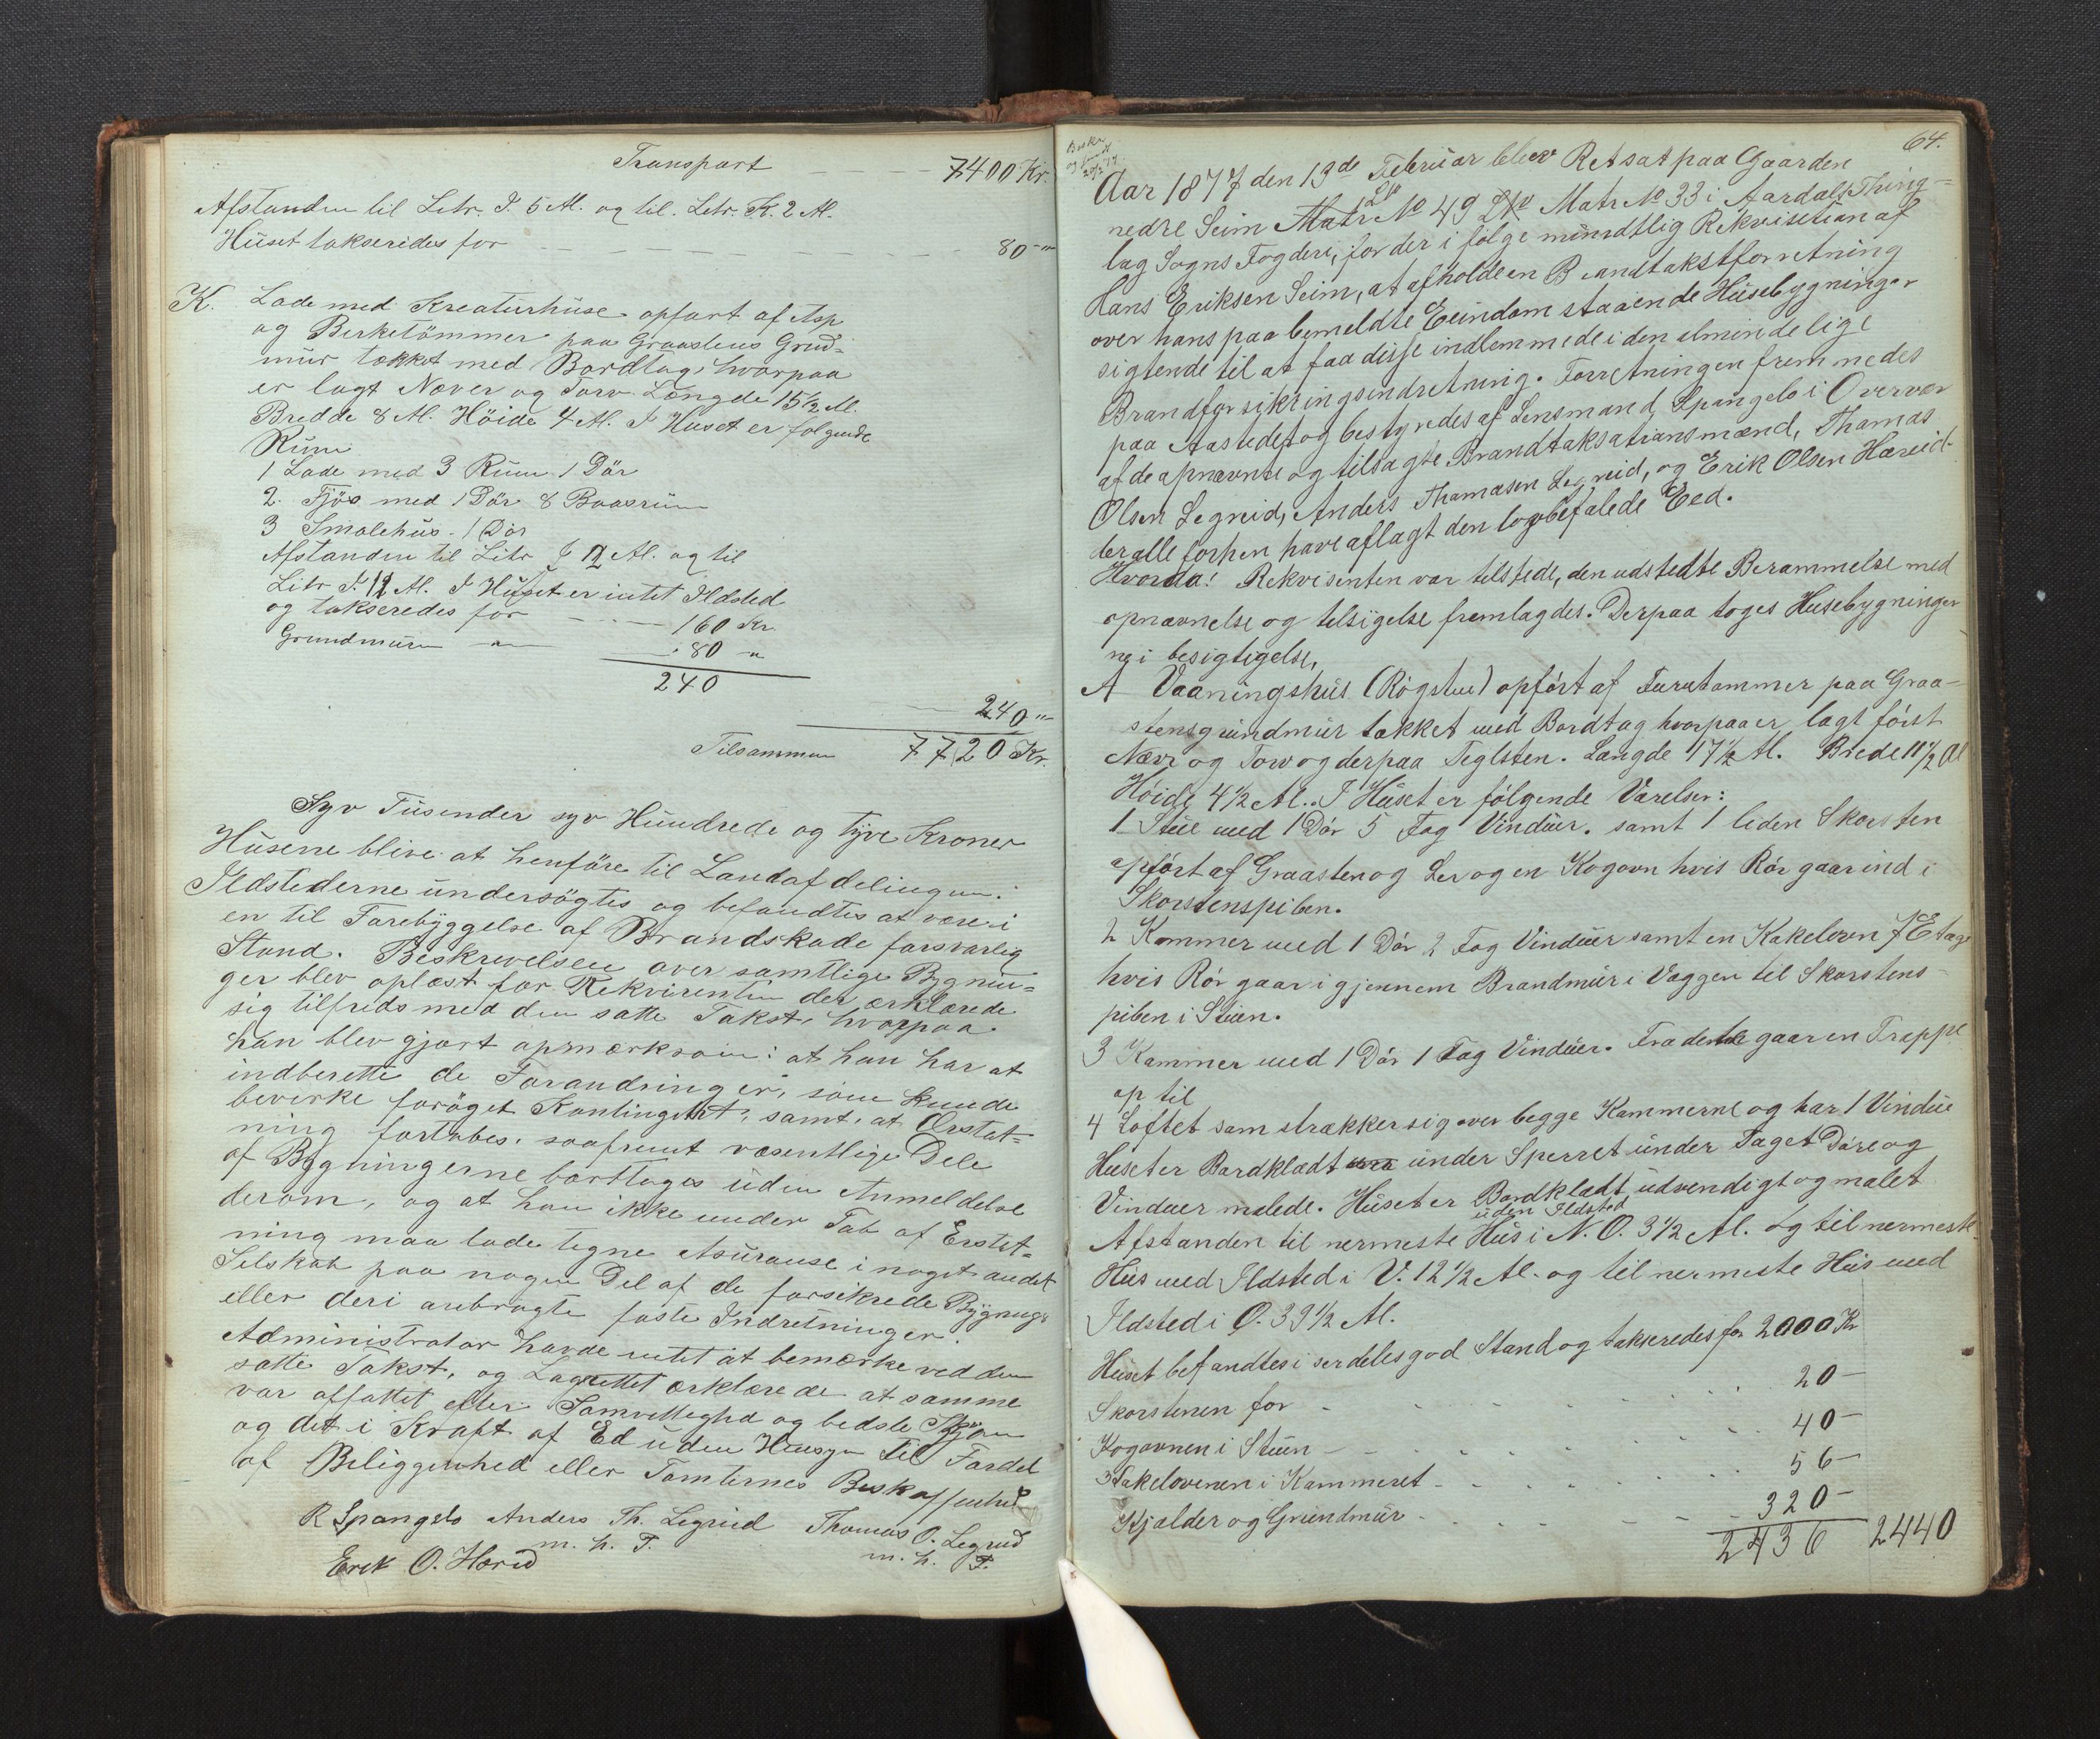 Transport - - - 7400 Kr.
Afstanden til Litr. I. 5 Al. og til Litr. K. 2 Al.
Huset takseredes for - - - - - - 80 - "
K. Lade med Kreaturhuse opført af Asp
og Berketömmer paa Graastens Grud-
mur tækket med Bordtag, hvorpaa
er lagt Næver og Torv. Længde 15 1/2 Al.
Bredde 8 Al. Höide 4 Al. I Huset er følgende
Rum
1 Lade med 3 Rum 1 Dör
2. Fjös med 1 Dör 8 Baasrum
3 Smalehus. 1 Dör
Afstanden til Litr I 2 Al. og til
Litr I. 12 Al. I Huset er intet Ildsted
og takseredes for - - - 160 Kr
Grundmuren - " - 80 - "
240
240 "
Tilsammen 7720 Kr.
Syv Tusender syv Hundrede og tyve Kroner
Husene blive at henføre til Landafdelingen.
Ildstederne undersögtes og befandtes at være i
en til Forebyggelse af Brandskade forsvarlig
Stand. Beskrivelsen over samtlige Bygnin-
ger blev oplæst for Rekvirenten der erklærede
sig tilfreds med den satte Takst, hvorpaa
han blev gjort opmærksom: at han har at
indberette de Forandringer, som kunde
bevirke foröget Kontingent, samt, at Erstat-
ning fortabes, saafremt væsentlige Dele
af Bygningerne borttages uden Anmeldelse
derom, og at han ikke under Tab af Erstat-
ning maa lade tegne Assuranse i noget andet
Selskab paa nogen Del af de forsikrede Bygning
eller deri anbragte faste Indretninger.
Administrator havde intet at bemærke ved den
satte Takst, og Lagrettet erklærede at samme
var affattet efter Samvittighed og bedste Skjön
og det i Kraft af Ed uden Hensyn til Fordel
af Beliggenhed eller Tomternes Beskaffenhed
R Spangelo Anders Th. Legreid Thomas O. Legreid
m. h. P. m. h. P.
Erik O. Hæreid
64.
Aar 1877 den 13de Februar blev Ret sat paa Gaarden
nedre Seim Matr No 49 LNo Matr No 33 i Aardals Thing-
lag Sogns Fogderi, for der i følge mundtlig Rekvisition af
Hans Eriksen Seim, at afholde en Brandtakstforretning
over hans paa bemeldte Eiendom staaende Husebygninger
sigtende til at faa disse indlemmede i den almindelige
Brandforsikringsindretning. Forretningen fremmedes
paa Aastedet og bestyredes af Lensmand Spangelo i Overvær
af de opnævnte og tilsagte Brandtaksationsmænd, Thomas
Olsen Legreid, Anders Thomasen Legreid, og Erik Olsen Hæreid
der alle forhen have aflagt den lovbefalede Eed.
Hvorda! Rekvirenten var tilstede, den udstedte Berammelse med
opnævnelse og tilsigelse fremlagdes. Derpaa toges Husebygninger
ne i besigtigelse,
A Vaaningshus (Rögstue) opført af Furutømmer paa Graa-
stensgrundmur tækket med Bordtag hvorpaa er lagt först
Næver og Torv og derpaa Teglsten. Længde 17 1/2 Al. Brede 11 1/2 Al
Höide 4 1/2 Al. I Huset er fölgende Værelser:
1 Stue med 1 Dör 5 Fag Vinduer. samt 1 liden Skorsten
opfört af Graasten og Ler og en Kogovn hvis Rör gaar ind i
Skorstenspiben.
2 Kammer med 1 Dör 2 Fag Vinduer samt en Kakelovn 3 Etage
hvis Rör gaar igjennem Brandmur i Væggen til Skorstens-
piben i Stuen.
3 Kammer med 1 Dör 1 Fag Vinduer. Fra dette gaar en Trappe
op til
4 Loftet som strækker sig over begge Kammerne og har 1 Vindue
Huset er Bordklædt under Sperret under Taget Döre og
Vinduer malede. Huset er Bordklædt udvendigt og malet
uden Ildsted
Afstanden til nermeste Hus i N. O. 3 1/2 Al. og til nermeste
Hus med Ildsted i V. 12 1/2 Al. og til nermeste Hus med
Ildsted i Ø. 39 1/2 Al.
Huset befandtes i serdeles god Stand og takseredes for 2000 Kr
Skorstenen for - - - 20 -
Kogovnen i Stuen - - - 40 -
Kakelovenen i Kammeret - - - 56 -
Kjælder og Grundmur - - - 320 -
2436 2440